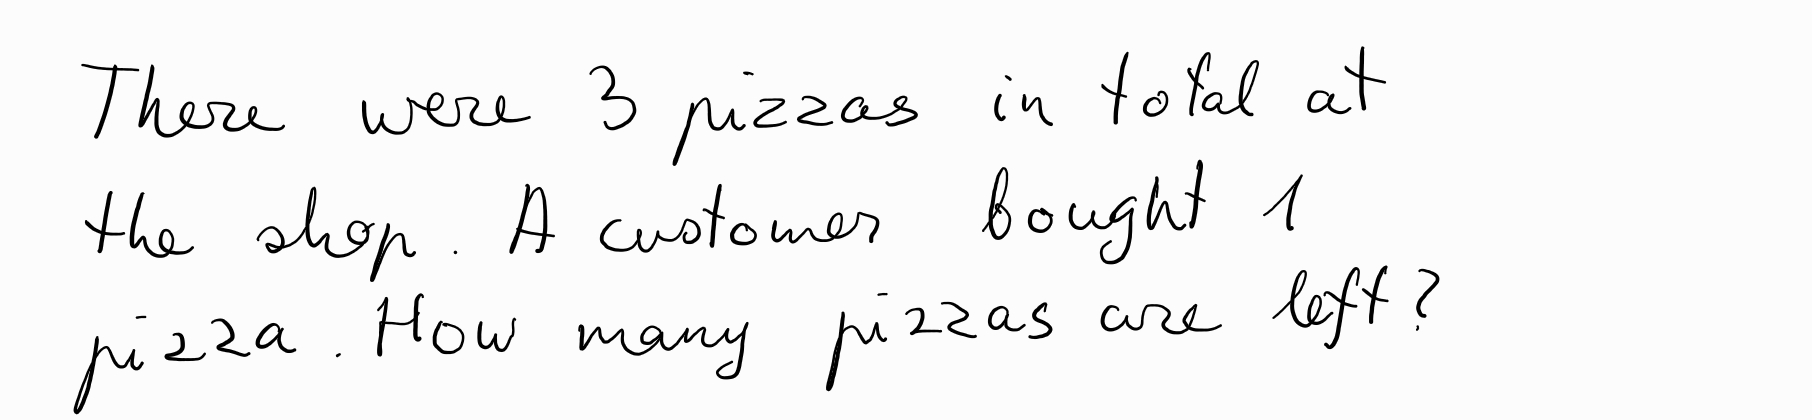 There were 3 pizzas in total at
the shop. A customer bought 1
pizza. How many pizzas are left?